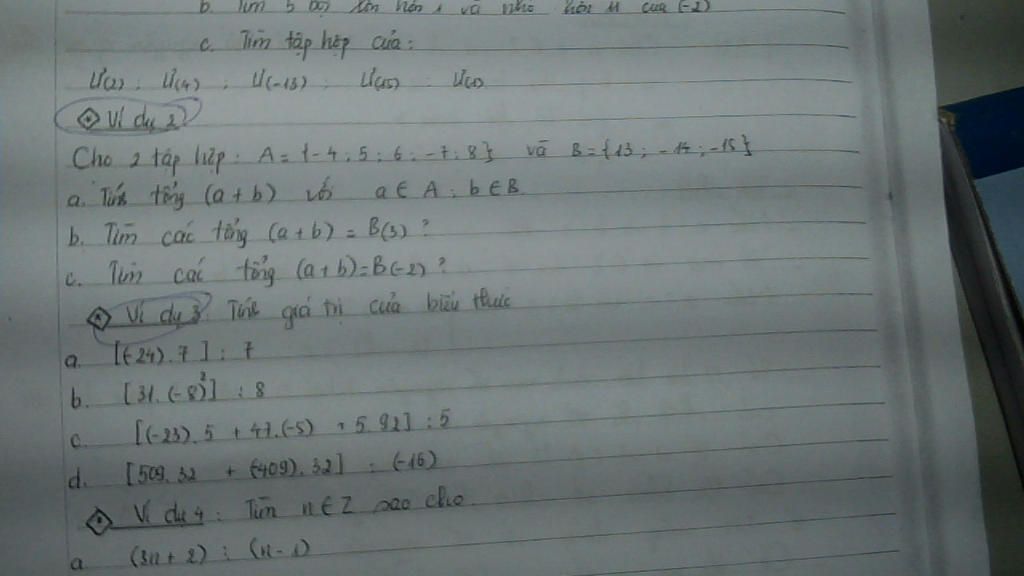 b. Tìm 5 bội lớn hơn 1 và nhỏ hơn 11 của (-2)
c. Tìm tập hợp của:
Ư(2) ; Ư(4) ; Ư(-13) ; Ư(15) ; Ư(1)
Ví dụ 2
Cho 2 tập hợp: A = {-4; 5; 6; -7; 8} và B = {13; -14; -15}
a. Tính tổng (a + b) với a ∈ A; b ∈ B
b. Tìm các tổng (a + b) = B(3) ?
c. Tìm các tổng (a + b) = B(-2) ?
Ví dụ 3 Tính giá trị của biểu thức
a. [(-24). 7] : 7
b. [31. (-8)²] : 8
c. [(-23). 5 + 47.(-5) + 5. 92] : 5
d. [509. 32 + (-409). 32] : (-16)
Ví dụ 4 : Tìm n ∈ Z sao cho
a (3n + 2) : (n - 1)